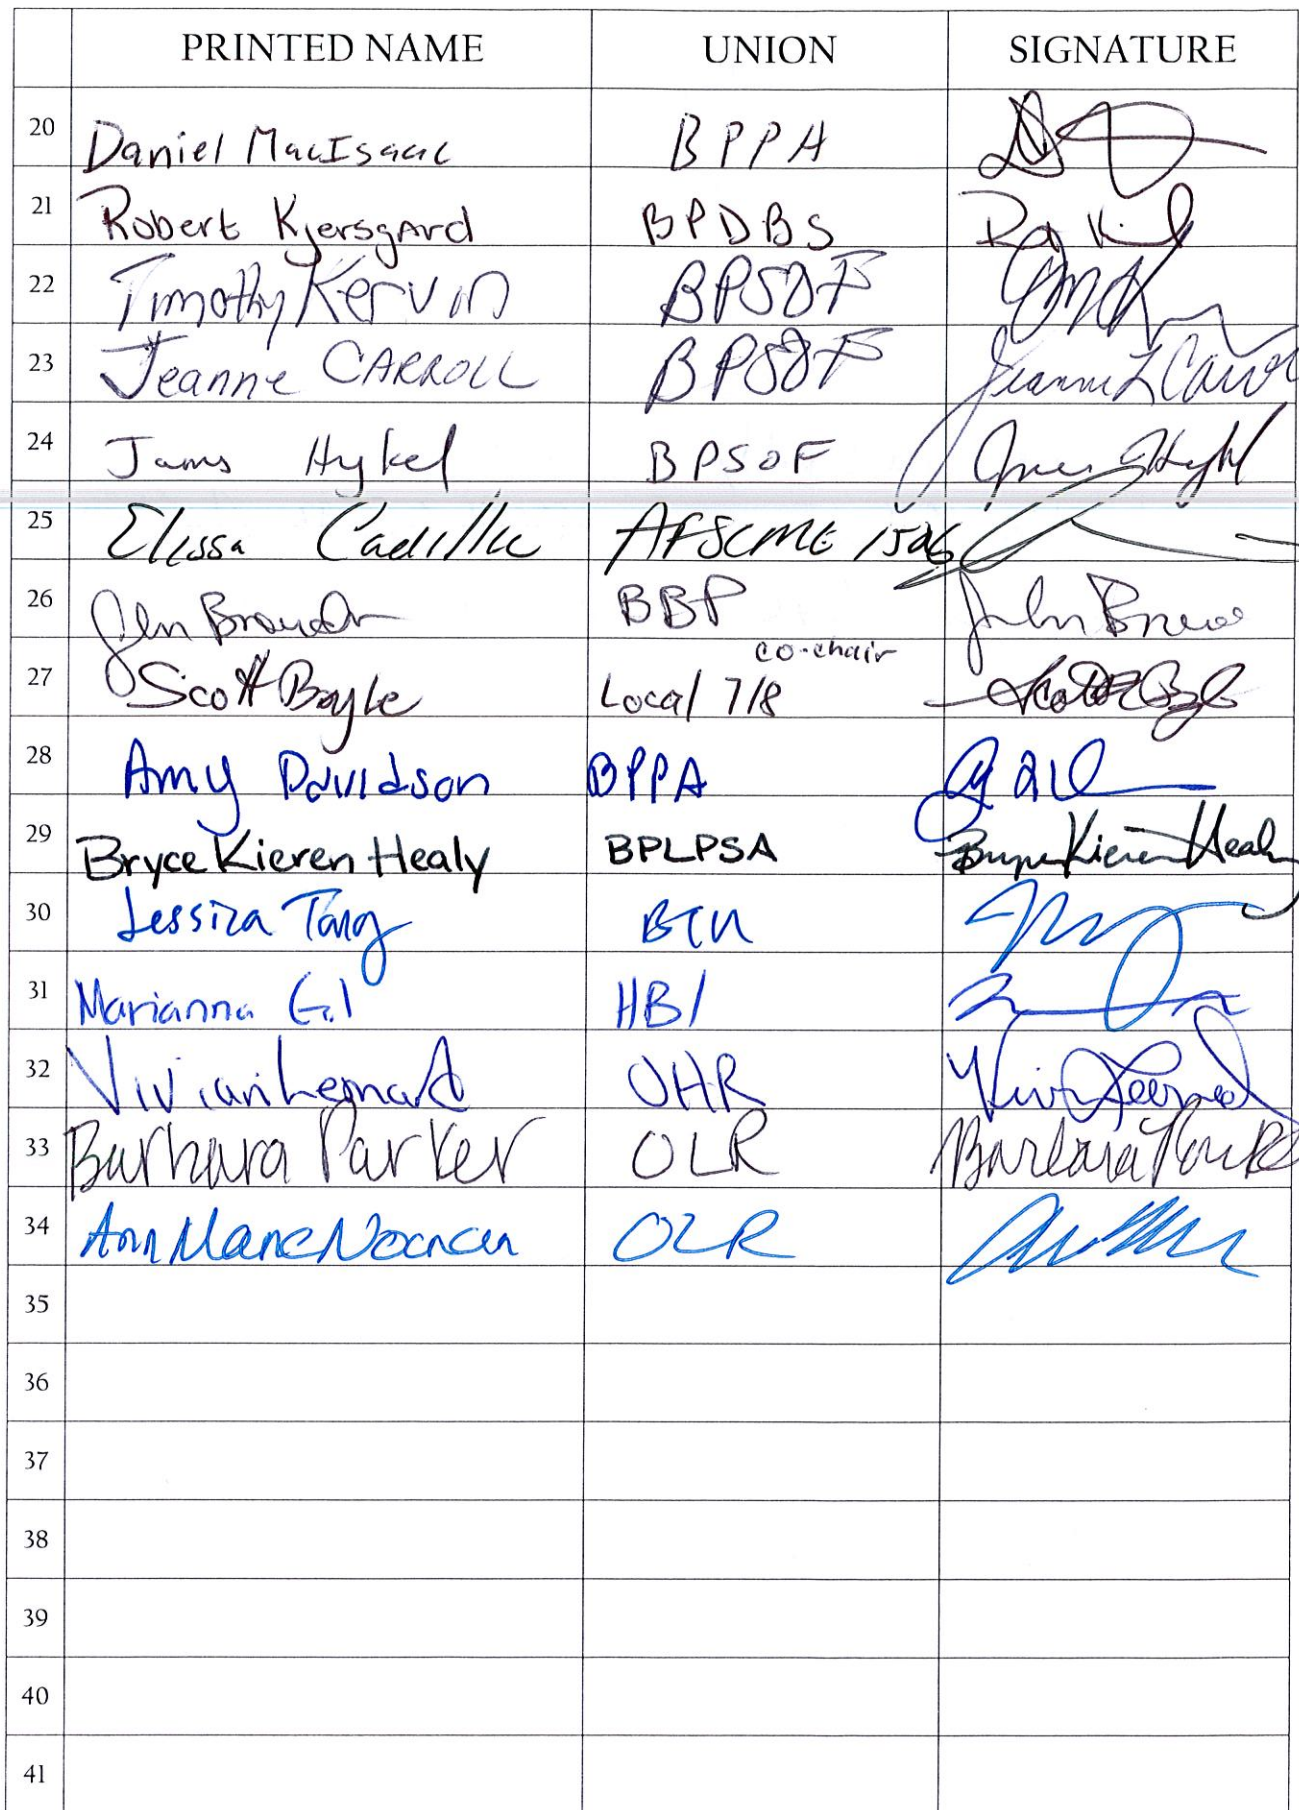 PRINTED NAME UNION SIGNATURE
20 Daniel MacIsaac BPPA
21 Robert Kjersgard BPDBS
22 Timothy Kervin BPSOF
23 Jeanne CARROLL BPSOF Jeanne L Carroll
24 James Hykel BPSOF
25 Elissa Cadillic AFSCME 1526
26 BBP John
co-chair
27 Scott Boyle Local 718 Scott Boyle
28 Amy Davidson BPPA
29 Bryce Kieren Healy BPLPSA Bryce Kieren Healy
30 Jessica Tang BTU
31 Marianna Gil HBI
32 Vivian Leonard OHR Vivian Leonard
33 Barbara Parker OLR Barbara Parker
34 AnnMarie Noonan OLR
35
36
37
38
39
40
41